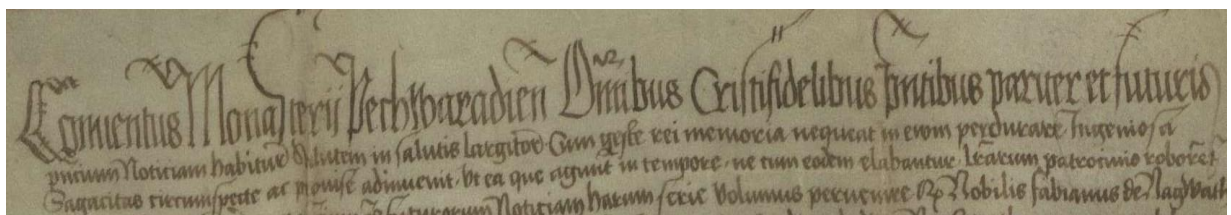 Conuentus Monasterij Pechwaradien Omnibus Cristifidelibus pntibus pariter et futuris
pncium Noticiam habitur Salutem in salutis largitore Cum geste rei memoria nequeat in evom perdurare Ingeniosa
Sagacitas circumspecte ac prouise adinuenit Vt ea que agunt in tempore ne cum eodem elabantur lrarum patrocinio roboret
futurorum Noticiam harum serie Volumus peruenire Nobilis fabianus de